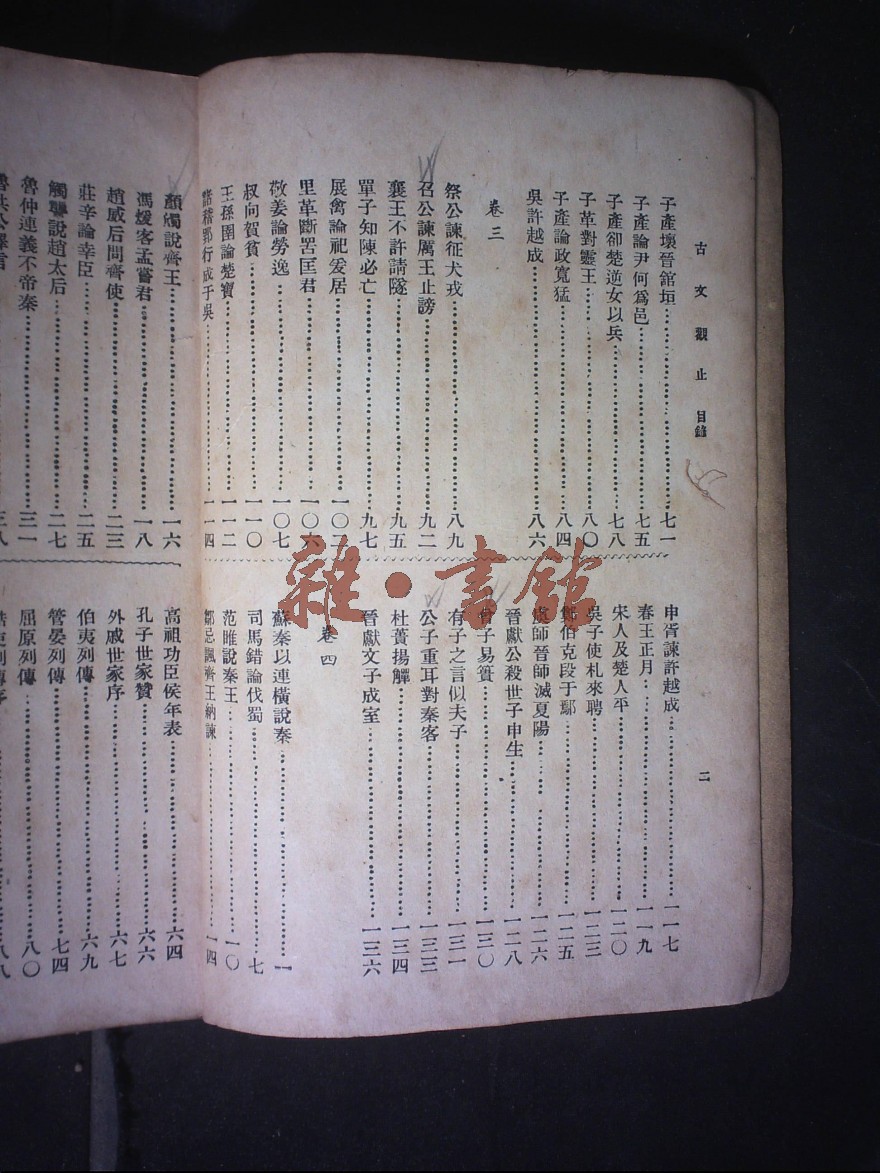 古文觀止 目錄
二
子產壞晉館垣 七一
子產論尹何爲邑 七五
子產卻楚逆女以兵 七八
子革對靈王 八〇
子產論政寬猛 八四
吳許越成 八六
卷三
祭公諫征犬戎 八九
召公諫厲王止謗 九二
襄王不許請隧 九五
單子知陳必亡 九七
展禽論祀爰居
里革斷罟匡君 一〇六
敬姜論勞逸 一〇七
叔向賀貧 一一〇
王孫圉論楚寶 一一二
諸稽郢行成于吳 一一四
申胥諫許越成 一一七
春王正月 一一九
宋人及楚人平 一二〇
吳子使札來聘 一二三
鄭伯克段于鄢 一二五
虞師晉師滅夏陽 一二六
晉獻公殺世子申生 一二八
曾子易簀 一三〇
有子之言似夫子 一三一
公子重耳對秦客 一三三
杜蕢揚觶 一三四
晉獻文子成室 一三六
卷四
蘇秦以連橫說秦 一
司馬錯論伐蜀 七
范睢說秦王 一〇
鄒忌諷齊王納諫 一四
顏斶說齊王 一六
馮煖客孟嘗君 一八
趙威后問齊使 二三
莊辛論幸臣 二五
觸讋說趙太后 二七
魯仲連義不帝秦 三一
魯共公擇言 三八
高祖功臣侯年表 六四
孔子世家贊 六六
外戚世家序 六七
伯夷列傳 六九
管晏列傳 七四
屈原列傳 八〇
八八
雜·書館